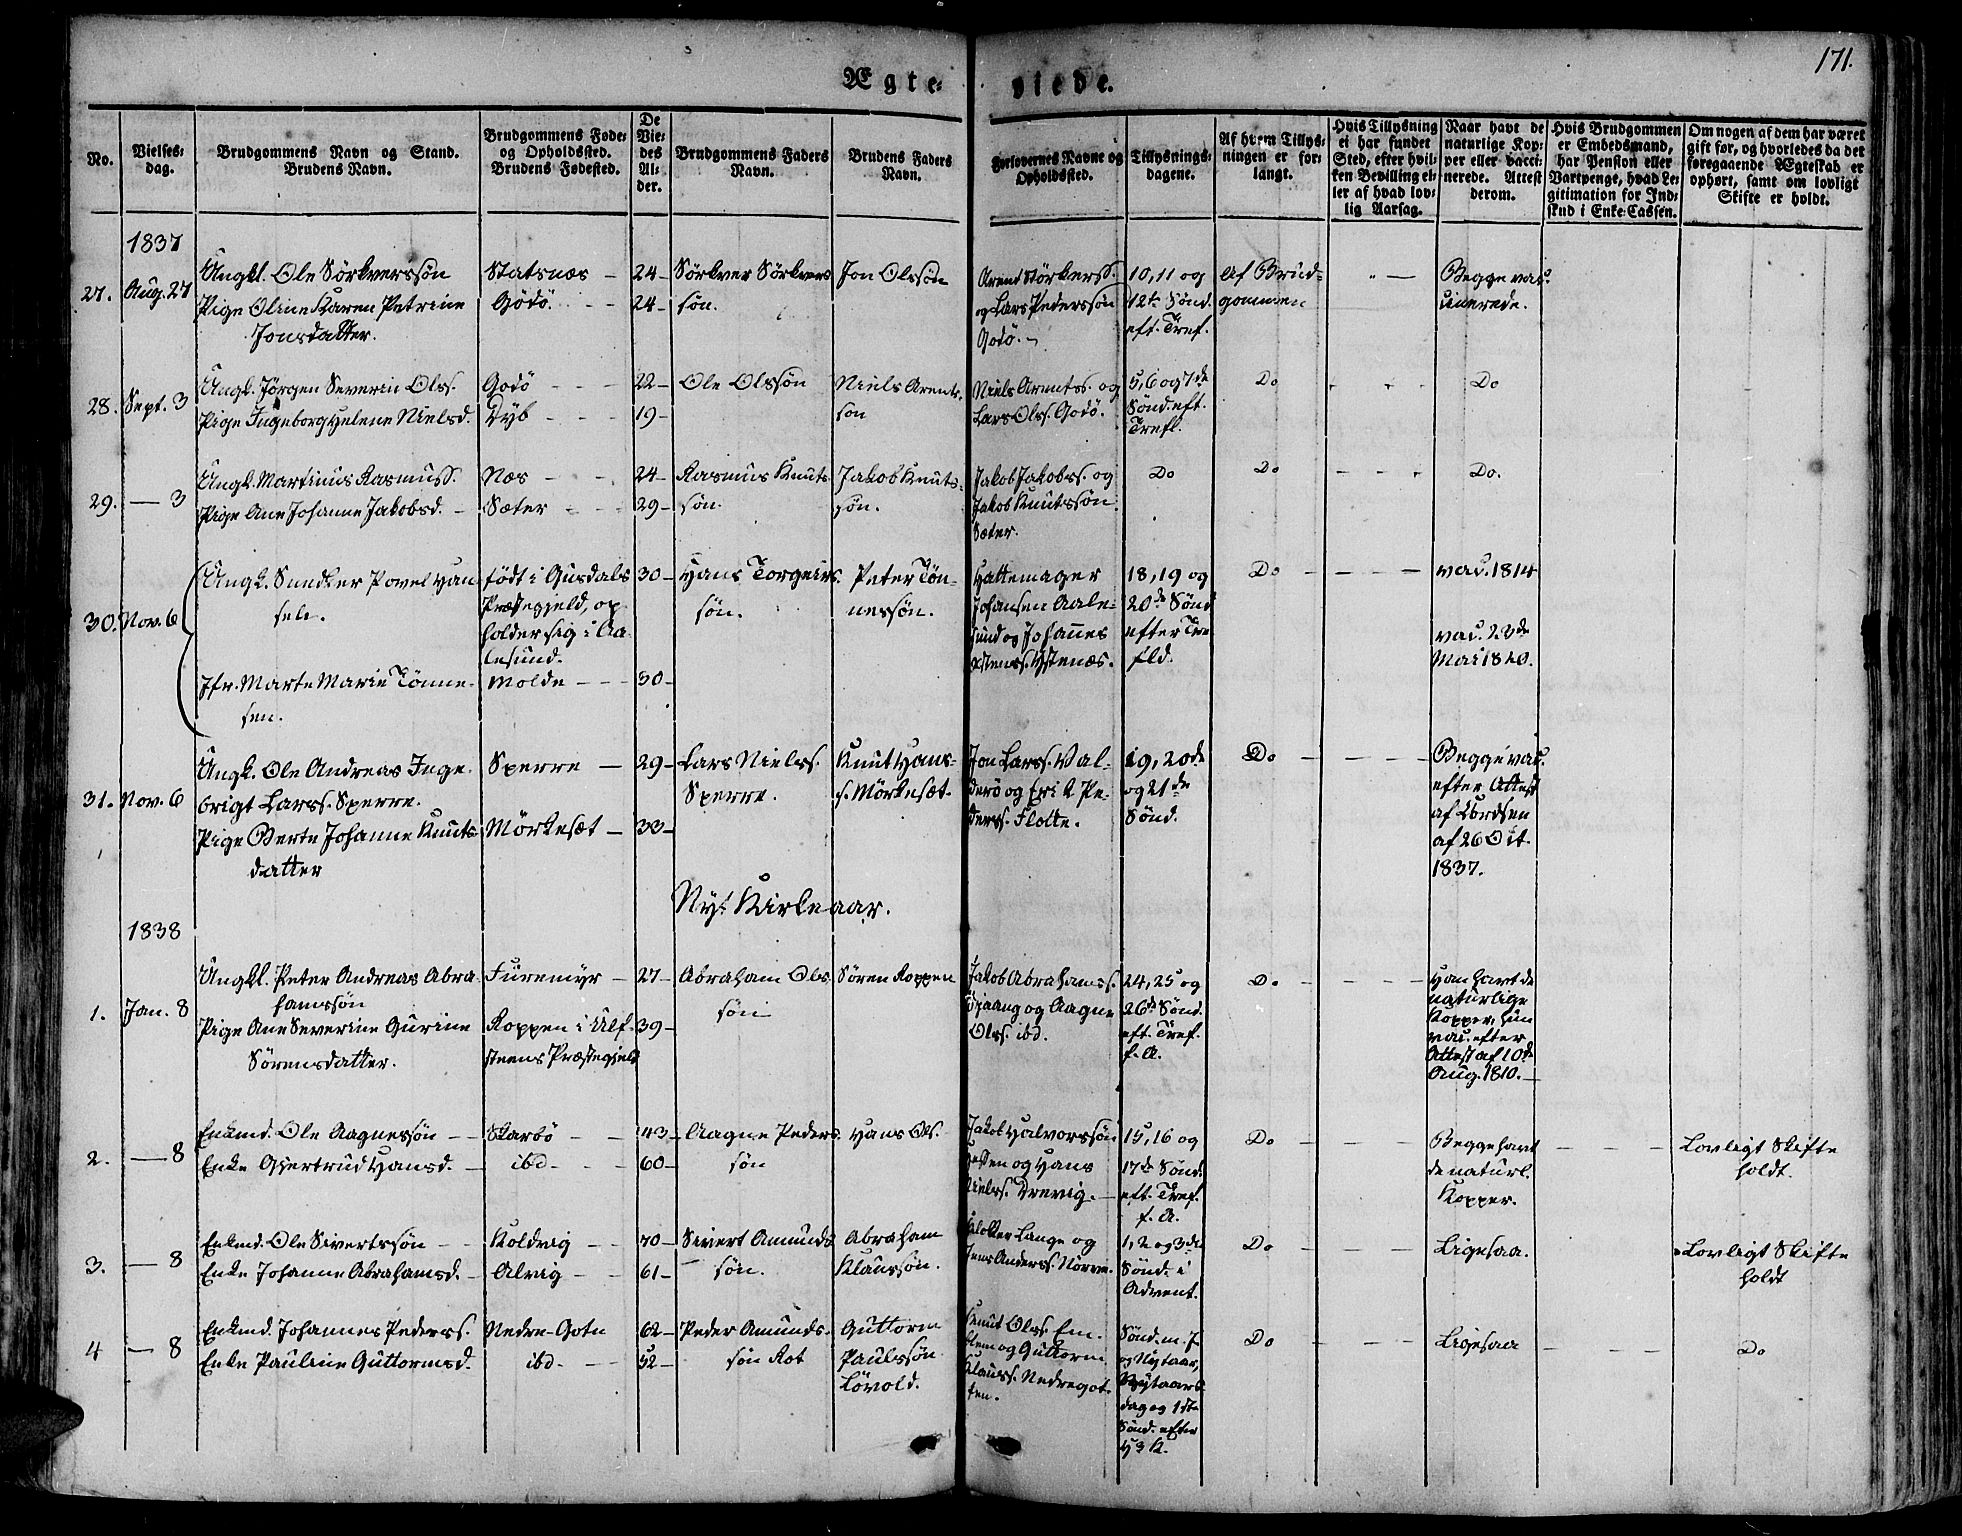 171.
Ægte- viede.
No.
Vielses-
dag.
Brudgommens Navn og Stand.
Brudens Navn.
Brudgommens Føde-
og Opholdssted.
Brudens Fødested.
De
Vie-
des
Al-
der.
Brudgommens Faders
Navn.
Brudens Faders
Navn.
Forlovernes Navne og
Opholdssted.
Tillysnings-
dagene.
Af hvem Tillys-
ningen er for-
langt.
Hvis Tillysning
ei har fundet
Sted, efter hvil-
ken Bevilling el-
ler af hvad lov-
lig Aarsag.
Naar havt de
naturlige Kop-
per eller vacci-
nerede. Attest
derom.
Hvis Brudgommen
er Embedsmand,
har Pension eller
Vartpenge, hvad Le-
gitimation for Ind-
skud i Enke-Cassen.
Om nogen af dem har været
gift før, og hvorledes da det
foregaaende Ægteskab er
ophørt, samt om lovligt
Skifte er holdt.
1837
27.
Aug. 27
Ungkl. Ole Sørkverssøn
Pige Oline Karen Petrine
Jonsdatter.
Statsnæs –
Godö. – –
24 –
24 –
Sörkver Sörkvers
søn.
Jon Olssøn
Arent Störkerss.
og Lars Pederssøn
Godö.
10, 11 og
12te Sönd.
eft. Tref.
Af Brud-
gommen
" –
Begge vac-
cinerede.
28.
Sept. 3
Ungk. Jørgen Severin Olss.
Pige Ingeborg Helene Nielsd.
Godö – – –
Dyb – – –
22 –
19 –
Ole Olssøn
Niels Arents-
søn
Niels Arentss. og
Lars Olss. Godö.
5, 6 og 7de
Sönd. eft.
Trefl.
Do
Do
29.
— 3
Ungk. Martinus Rasmuss.
Pige Ane Johanne Jakobsd. –
Næs – – –
Sæter – – –
24 –
29 –
Rasmus Knuts
søn.
Jakob Knuts-
søn.
Jakob Jakobs. og
Jakob Knutssøn
Sæter.
Do
Do
– – –
Do.
30.
Nov. 6
Ungk. Snedker Povel Han
sen.
Jfr. Marte Marie Tönne-
sen.
født i Gusdals
Præstegjeld, op
holder sig i Aa
lesund.
Molde – – –
30 –
30 –
Hans Torgeirs
søn.
Peter Tön-
nessøn.
Hattemager
Johansen Aale-
sund og Johannes
Ystenæs.
18, 19 og
20de Sönd
efter Tre
fld.
Do
– – –
vac. 1814
vac. 22de
Mai 1820.
31.
Nov. 6
Ungk. Ole Andreas Inge-
brigt Larss. Sperre.
Pige Berte Johanne Knuts
datter
Sperre –
Mörkesæt –
29 –
33 –
Lars Nielss.
Sperre.
Knut Hans-
s. Mörkesæt.
Jon Larss. Val-
derö og Erik Pe-
derss. Flotte.
19, 20de
og 21de
Sönd.
Do
– – – –
Begge vac.
efter Attest
af Lordsen
af 26 Oct.
1837.
Nyt Kirkeaar.
1838
1.
Jan. 8
Ungkl. Peter Andreas Abra
hamssøn
Pige Ane Severine Gurine
Sörensdatter.
Furemyr –
Roppen i Ulf-
steens Præstegjeld
27 –
39 –
Abraham Ols
søn
Sören Roppen
Jakob Abrahamss.
og Aagne
Olss. ibd.
24, 25 og
26de Sönd.
eft. Tref.
f. A.
Do
– – – –
Han havt de
naturlige
Kopper, hun
vac. efter
Attest af 10de
Aug. 1810. –
2.
— 8
Enkmd. Ole Aagnessøn – –
Enke Gjertrud Hansd. –
Skarbö – –
ibd – – –
43 –
60 –
Aagne Peders
søn
Hans Ols.
Jakob Halvorssøn
og Hans
Nielss. Drevig. –
15, 16 og
17de Sönd.
eft. Tref.
f. A.
Do
– – – –
Begge havt
de naturl.
Kopper.
Lovligt Skifte
holdt.
3.
— 8
Enkmd. Ole Sivertssøn – –
Enke Johanne Abrahamsd. –
Koldvig – –
Alvig – –
70 –
61 –
Sivert Amunds
søn.
Abraham
Klaussøn.
Klokker Lange og
Jens Anderss. Norve.
1, 2 og 3de
Sönd. i
Advent.
Do
– – –
Ligesaa.
Lovligt Skifte
holdt
4
— 8
Enkmd. Johannes Pederss.
Enke Pauline Guttormsd.
Nedre-Gotn
ibd. – –
62 –
52 –
Peder Amunds-
søn Rot
Guttorm
Paulssøn
Lövold.
Knut Olss. Em-
blem og Guttorm
Klauss. Nedregot-
ten.
Sönd. m. J.
og Nytaar,
Nytaars
dag og 1ste
Sönd. efter
H 3 K.
Do
– – –
Ligesaa
Do